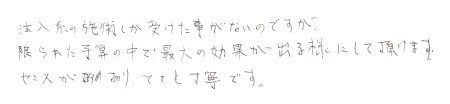 注入系の施術しか受けた事がないのですが、
限られた予算の中で最大の効果が出る様にして頂けます。
センスがあり、とても丁寧です。